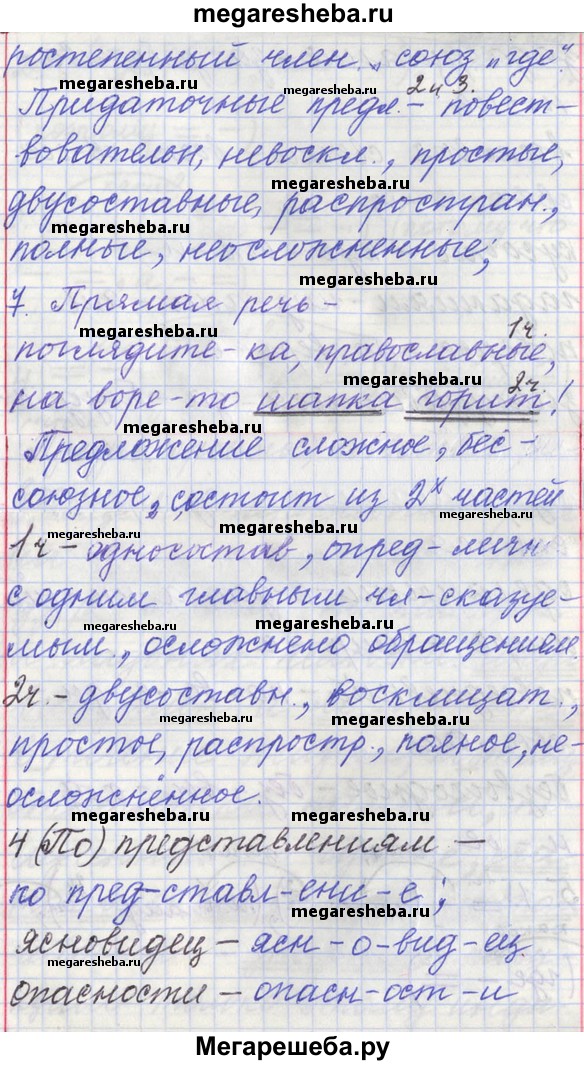 megaresheba.ru
ростепенный член. союз „где“.
megaresheba.ru megaresheba.ru
2 и 3.
Придаточные предл. – повест-
megaresheba.ru
вовательн, невоскл., простые,
megaresheba.ru
двусоставные, распростран.,
megaresheba.ru
полные, неосложненные;
megaresheba.ru
7. Прямая речь –
megaresheba.ru
1ч.
поглядите-ка, православные,
megaresheba.ru
2ч.
на воре-то шапка горит!
megaresheba.ru
Предложение сложное, бес-
megaresheba.ru
союзное, состоит из 2х частей
megaresheba.ru megaresheba.ru
1ч – односостав, опред-личн
megaresheba.ru
с одним главным чл-сказуе-
megaresheba.ru
мым, осложнено обращением.
megaresheba.ru
2ч. – двусоставн., восклицат.,
megaresheba.ru megaresheba.ru
простое, распростр., полное, не-
megaresheba.ru
осложнённое.
megaresheba.ru
4 (По) представлениям –
megaresheba.ru
по пред-ставл-ени-е;
megaresheba.ru
ясновидец – ясн-о-вид-ец
megaresheba.ru megaresheba.ru
опасности – опасн-ост-и
Мегарешеба.ру